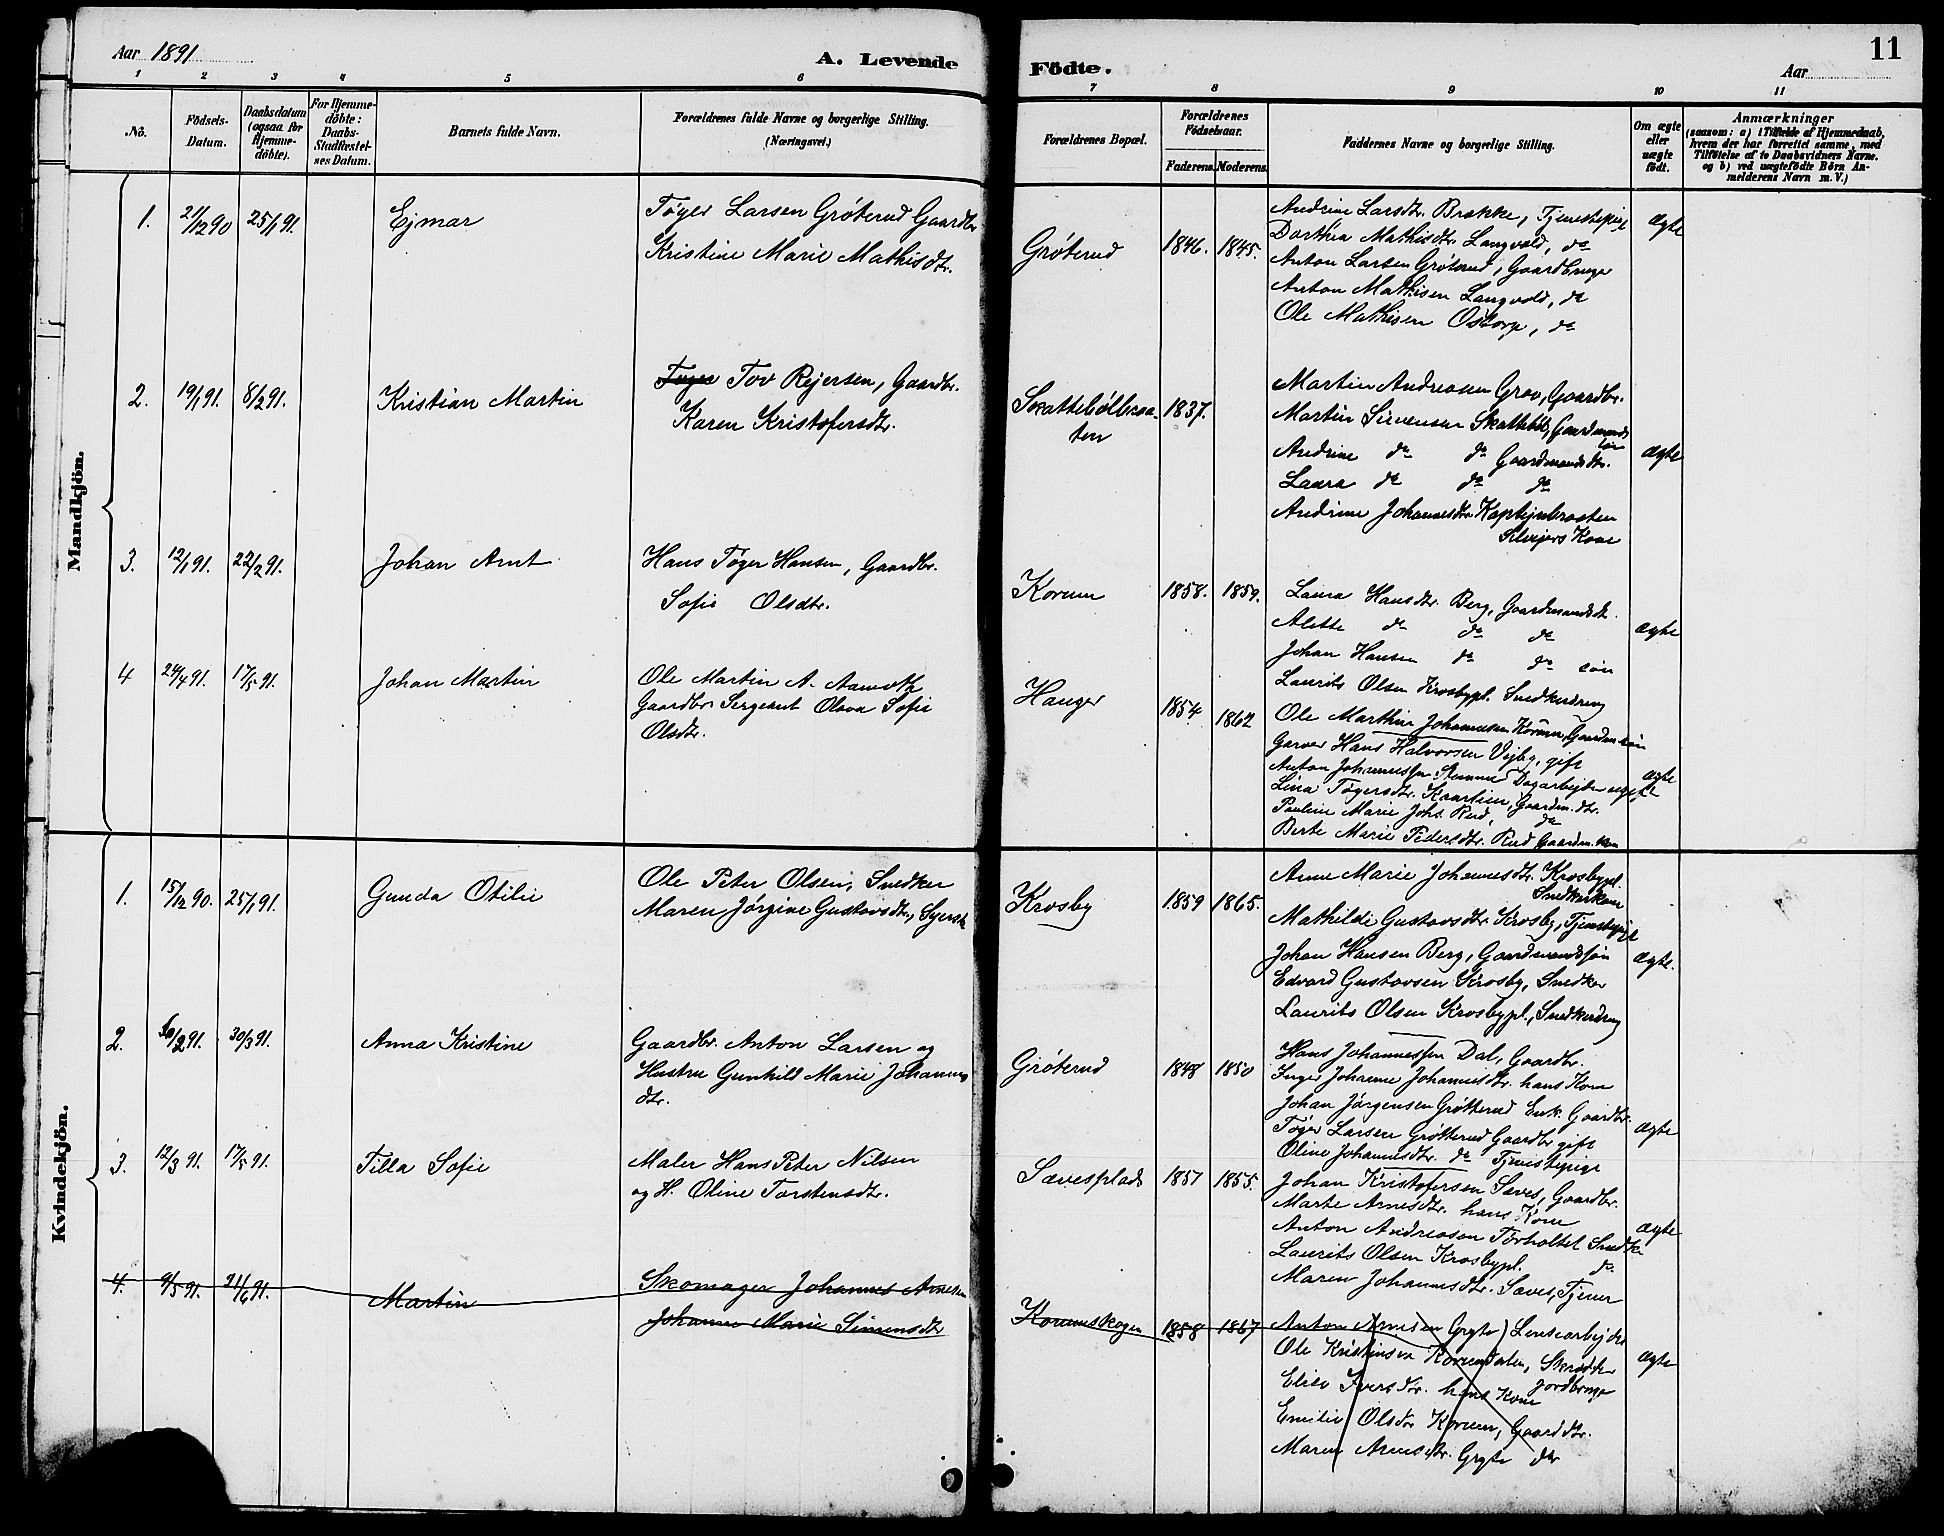 Aar 1891
A. Levende
Födte.
Aar
11
1 2 3 4 5 6 7 8 9 10 11
No.
Födsels-Datum.
Daabsdatum (ogsaa for Hjemme-döbte).
For Hjemme-döbte: Daabs-Stadfæstel-ses Datum.
Barnets fulde Navn.
Forældrenes fulde Navne og borgerlige Stilling.
(Næringsvei.)
Forældrenes Bopæl.
Forældrenes Födselsaar.
Faderens. Moderens.
Faddernes Navne og borgerlige Stilling.
Om ægte eller uægte födt.
Anmærkninger
(saasom: a) i Tilfælde af Hjemmedaab, hvem der har forrettet samme, med Tilföielse af to Daabsvidners Navne. og b) ved uægtefödte Börn An-melderens Navn m. V.)
Mandkjön.
1. 21/12 90 25/1 91. Ejmar
Tøger Larsen Grøterud Gaardbr.
Kristine Marie Mathisdtr.
Grøterud 1846. 1845.
Andrine Larsdtr. Brække, Tjenestepige
Dorthea Mathisdtr. Langvold, do
Anton Larsen Grøterud, Gaardbruger
Anton Mathisen Langvold, do
Ole Mathisen Ostorp, do
Ægte
2. 19/1 91. 8/2 91. Kristian Martin
Tøger Tov Rejersen, Gaardbr.
Karen Kristofersdtr.
Skattebølbraa-
ten
1837.
Martin Andreasen Grov, Gaardbr.
Martin Simensen Skattebøl, Gaardmands
søn
Andrine do do Gaardmandsdtr.
Laura do do do
Andrine Johannesdtr. Kaptejnbraaten
Kone
Ægte
3. 12/1 91. 22/2 91. Johan Arnt
Hans Tøger Hansen, Gaardbr.
Sofie Olsdtr.
Korum 1858. 1859.
Laura Hansdtr. Berg, Gaardmandsdtr.
Alette do do do
Johan Hansen do do søn
Laurits Olsen Krosbypl. Snedkerdreng
Ægte
4 24/4 91. 17/5 91. Johan Martin
Ole Martin A. Aamoth
Gaardbr. Sergeant Olava Sofie
Olsdtr.
Hauger 1854 1862
Ole Marthin Johannesen Korum, Gaardm. søn
Garver Hans Halvorsen Vigby, gift
Anton Johannessen Dagarbejder ugift
Lina Tøgersdtr. Kaartien, Gaardm. dtr.
Pauline Marie Johs. Rud, do
Berte Marie Pedersdtr. Rud Gaardm. kone
Ægte
Kvindekjön.
1. 15/12 90. 25/1 91. Gunda Otilie
Ole Peter Olsen, Snedker
Maren Jørgine Gustavsdtr., Syerske
Krosby 1859 1865.
Anne Marie Johannesdtr. Krosbypl.
Snedkerkone
Mathilde Gustavsdtr. Krosby, Tjenestepige
Johan Hansen Berg, Gaardmandssøn
Edvard Gustavsen Krosby, Snedker
Laurits Olsen Krosbypl., Snedkerdreng
Ægte.
2. 10/2 91. 30/3 91. Anna Kristine
Gaardbr. Anton Larsen og
Hustru Gunhild Marie Johannes
dtr.
Grøterud 1848 1850
Hans Johannessen Dal, Gaardbr.
Inger Johanne Johannesdtr. hans Kone
Johan Jørgensen Grøtterud Enk. Gaardbr.
Tøger Larsen Grøtterud Gaardbr gift
Oline Johannesdtr. do Tjenestepige
Ægte
3. 12/3 91. 17/5 91. Tilla Sofie
Maler Hans Peter Nilsen
og H. Oline Torstensdtr.
Sævesplads 1857 1855.
Johan Kristofersen Sæves, Gaardbr.
Marte Arnesdtr. hans Kone
Anton Andreasen Torholtet Snedk.
Laurits Olsen Krosbypl. do
Maren Johannesdtr. Sæves, Tjener
Ægte
4. 9/5 91. 21/6 91. Martin
Skomager Johannes Arnesen
Johanne Marie Simensdtr
Korumskogen 1858 1867
Anton Arnesen Gryte) Løsearbejder
Ole Kristensen Korumdalen, Skrædder
Jordbruger
Elise Iversdtr. hans Kone
Emilie Olsdtr Korum, Gaarddtr.
Maren Arnesdtr. Gryte do
Ægte